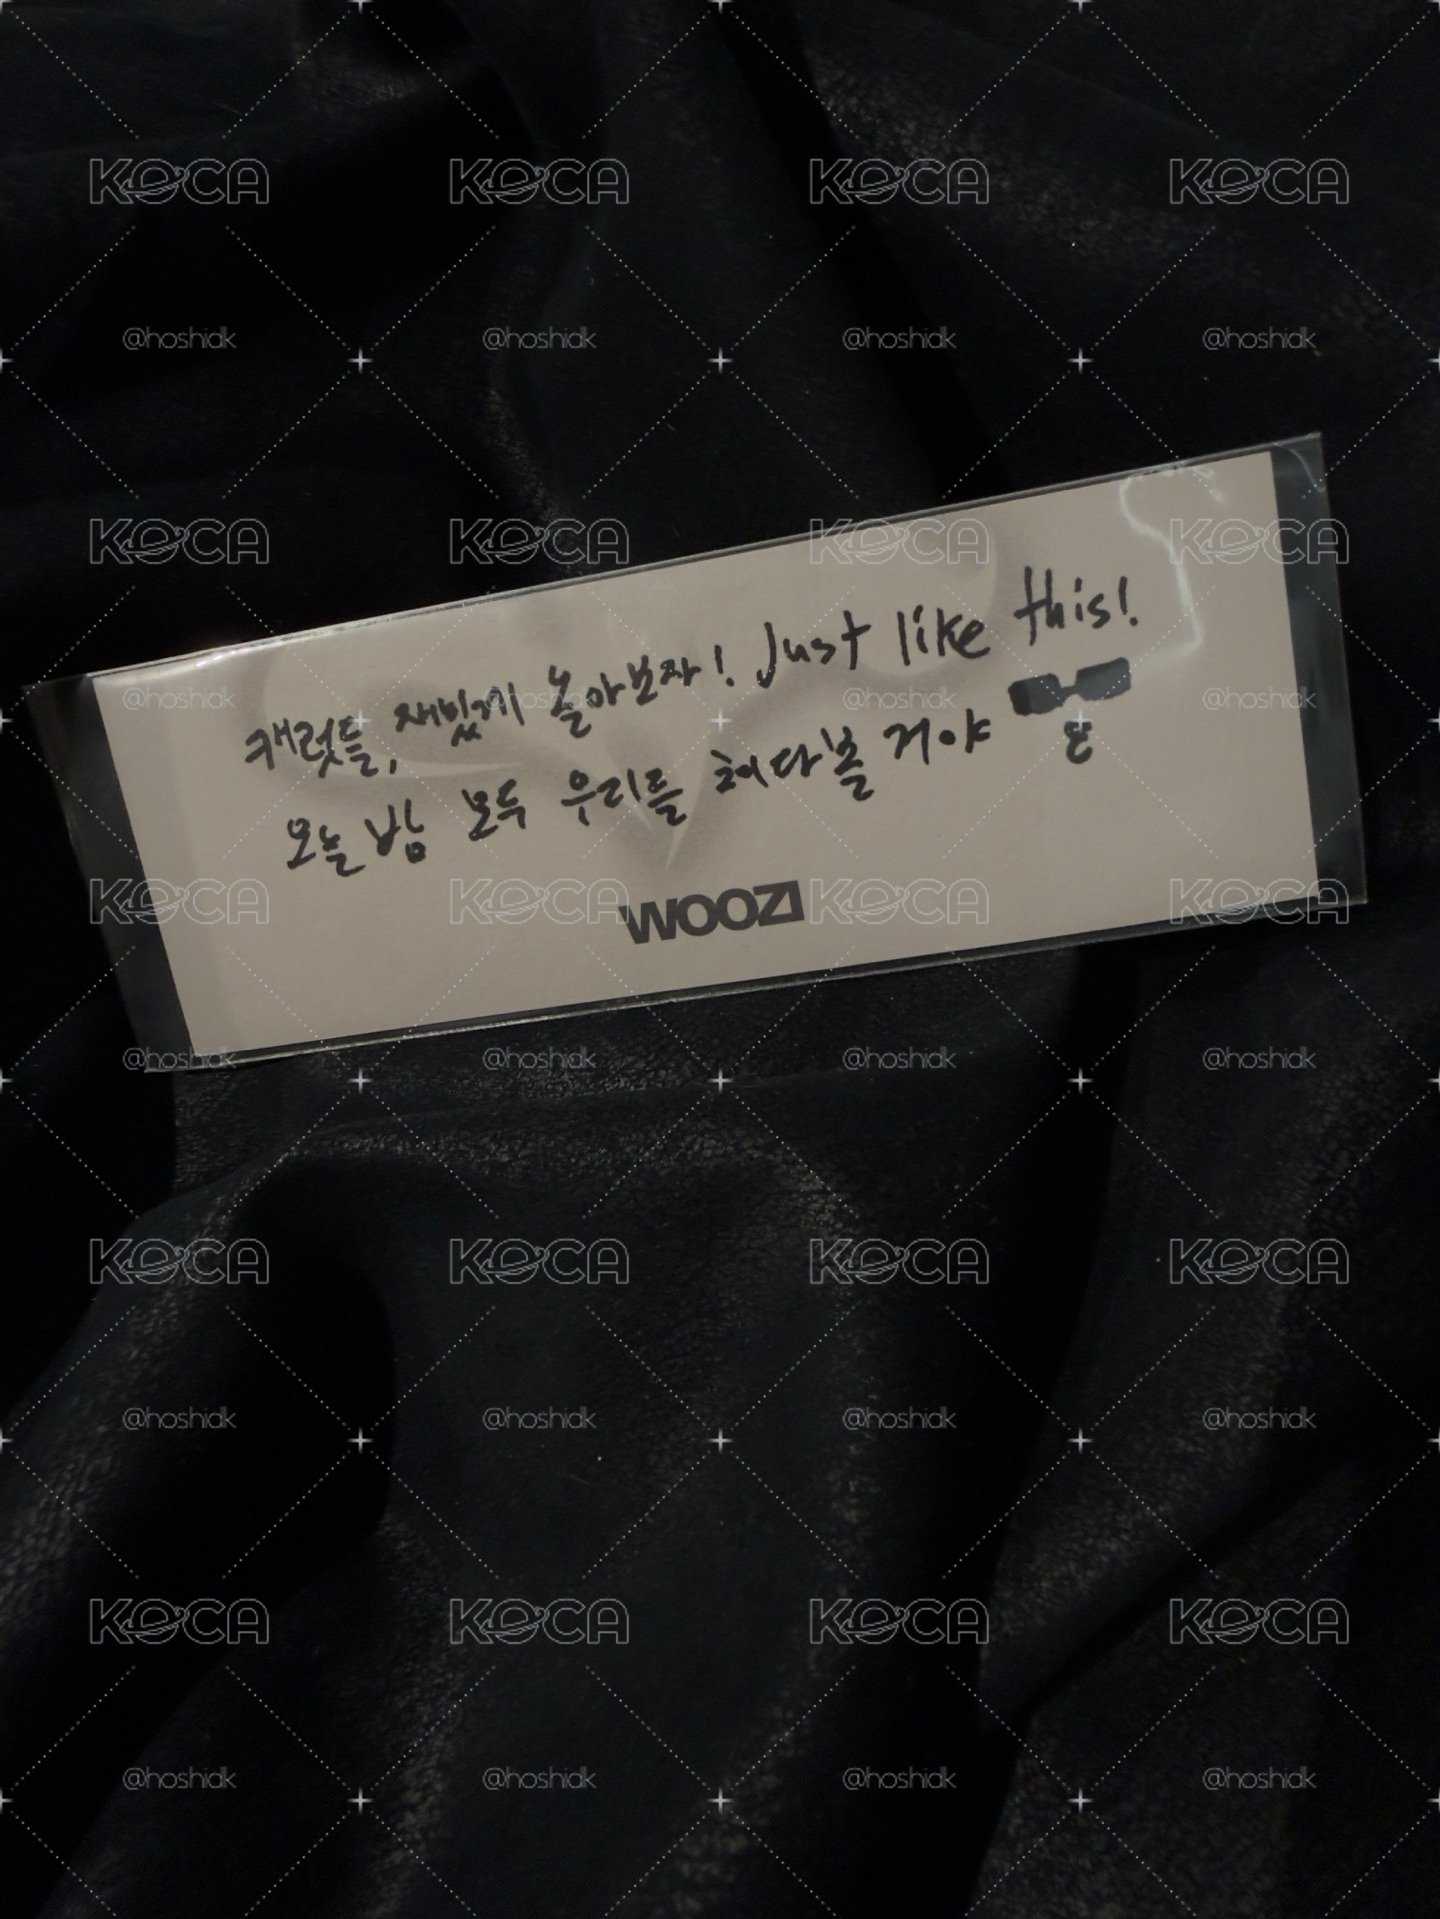 KOCA KOCA KOCA KOCA
@hoshidk @hoshidk @hoshidk @hoshidk
KOCA KOCA KOCA KOCA
캐럿들, 재밌게 놀아보자! Just like this!
오늘 밤 모두 우리를 쳐다볼 거야
WOOZI
@hoshidk @hoshidk @hoshidk @hoshidk
KOCA KOCA KOCA KOCA
@hoshidk @hoshidk @hoshidk @hoshidk
KOCA KOCA KOCA KOCA
@hoshidk @hoshidk @hoshidk @hoshidk
KOCA KOCA KOCA KOCA
@hoshidk @hoshidk @hoshidk @hoshidk